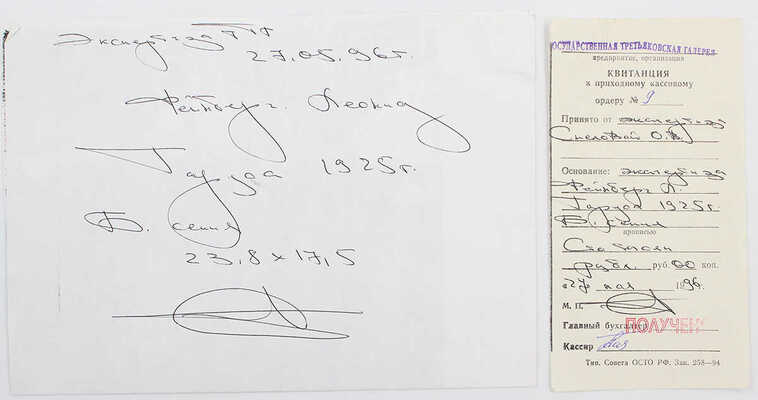 Экспертиза ГТГ
27.05.96г.
Фейнберг Леонид
Гаруда 1925г.
Б. сепия
23,8 х 17,5
ГОСУДАРСТВЕННАЯ ТРЕТЬЯКОВСКАЯ ГАЛЕРЕЯ
предприятие, организация
КВИТАНЦИЯ
к приходному кассовому
ордеру № 9
Принято от экспертиза
О.В.
Основание: экспертиза
Фейнберг Л.
Гаруда 1925г.
Б. сепия
прописью
Сто
рубл. руб. 00 коп.
«27» мая 1996 г.
М. П.
Главный бухгалтер
ПОЛУЧЕНО
Кассир
Тип. Совета ОСТО РФ. Зак. 258—94